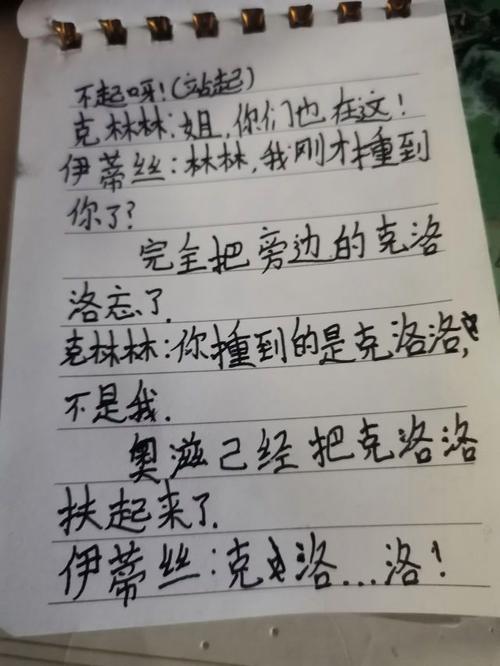 不起呀!(站起)
克林林:姐,你们也在这!
伊蒂丝:林林,我刚才撞到
你了?
完全把旁边的克洛
洛忘了.
克林林:你撞到的是克洛洛,
不是我.
奥滋己经把克洛洛
扶起来了.
伊蒂丝:克洛...洛!